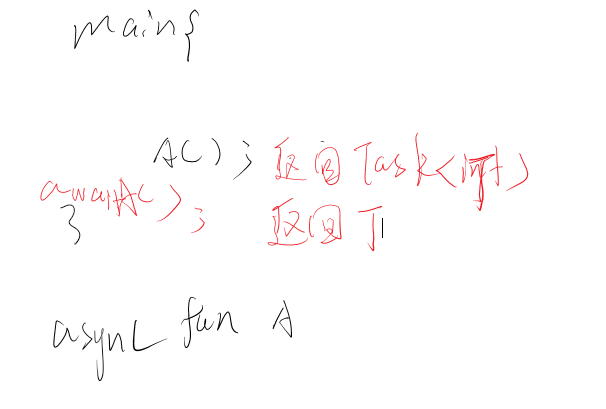 main{
A(); 返回Task<int>
await A();
返回T
}
async fun A